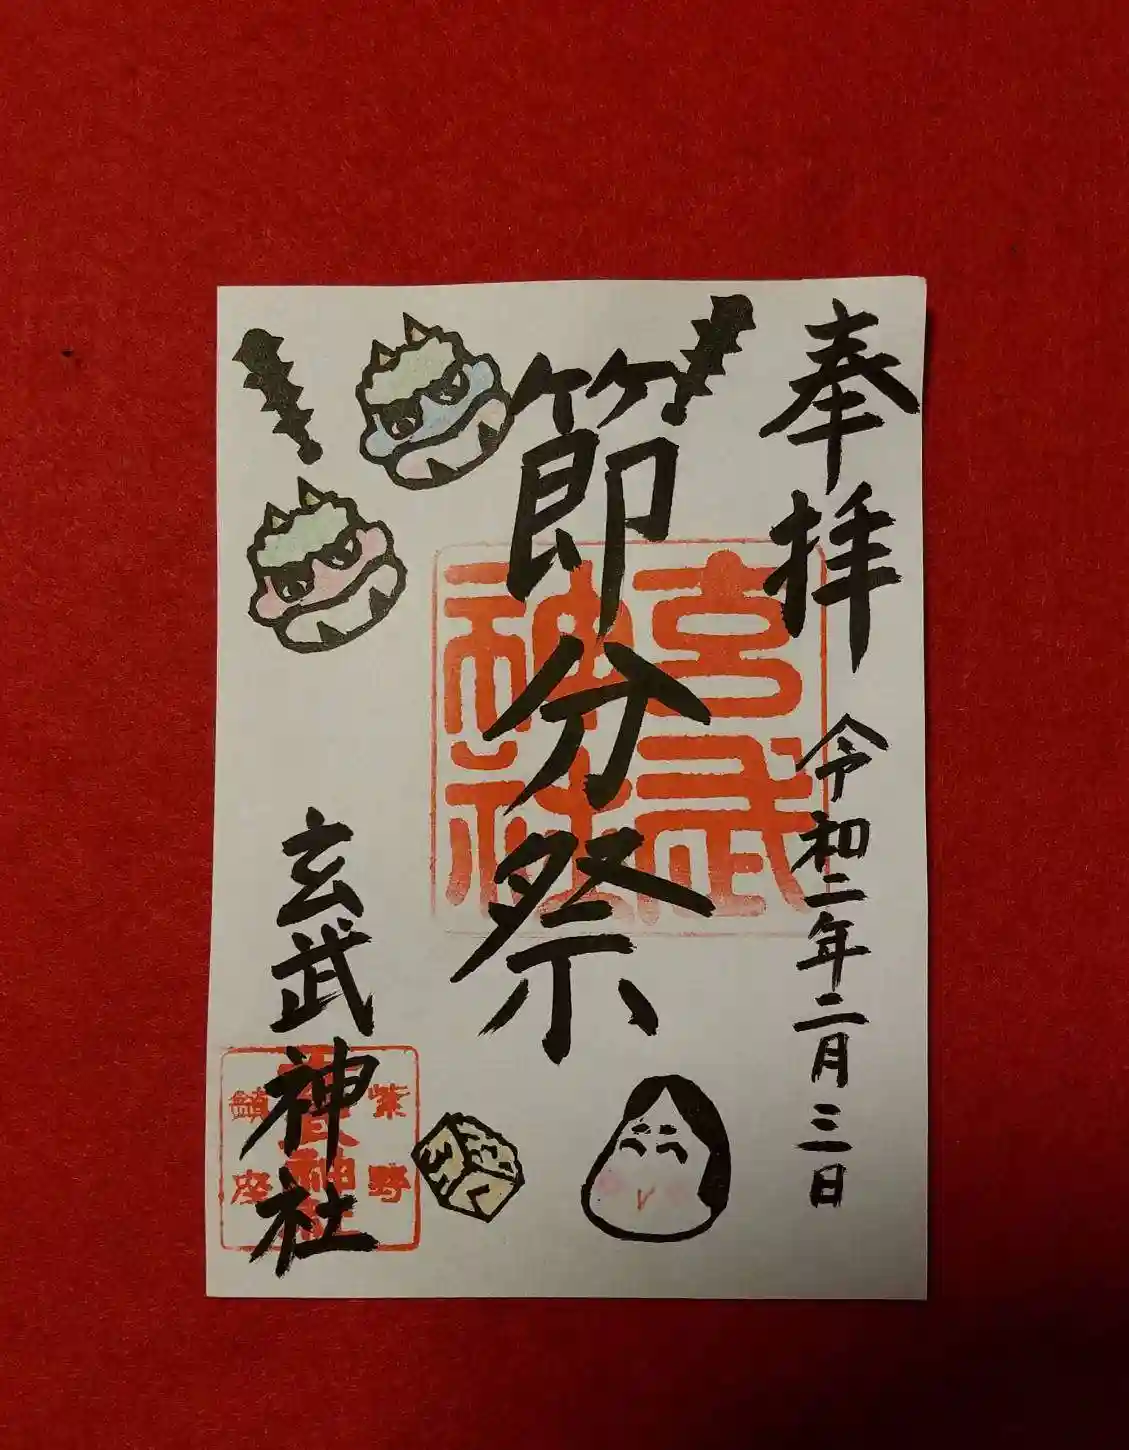 奉拝
令和二年二月三日
節分祭
玄武神社
玄武神社
紫野
玄武神社
鎮座